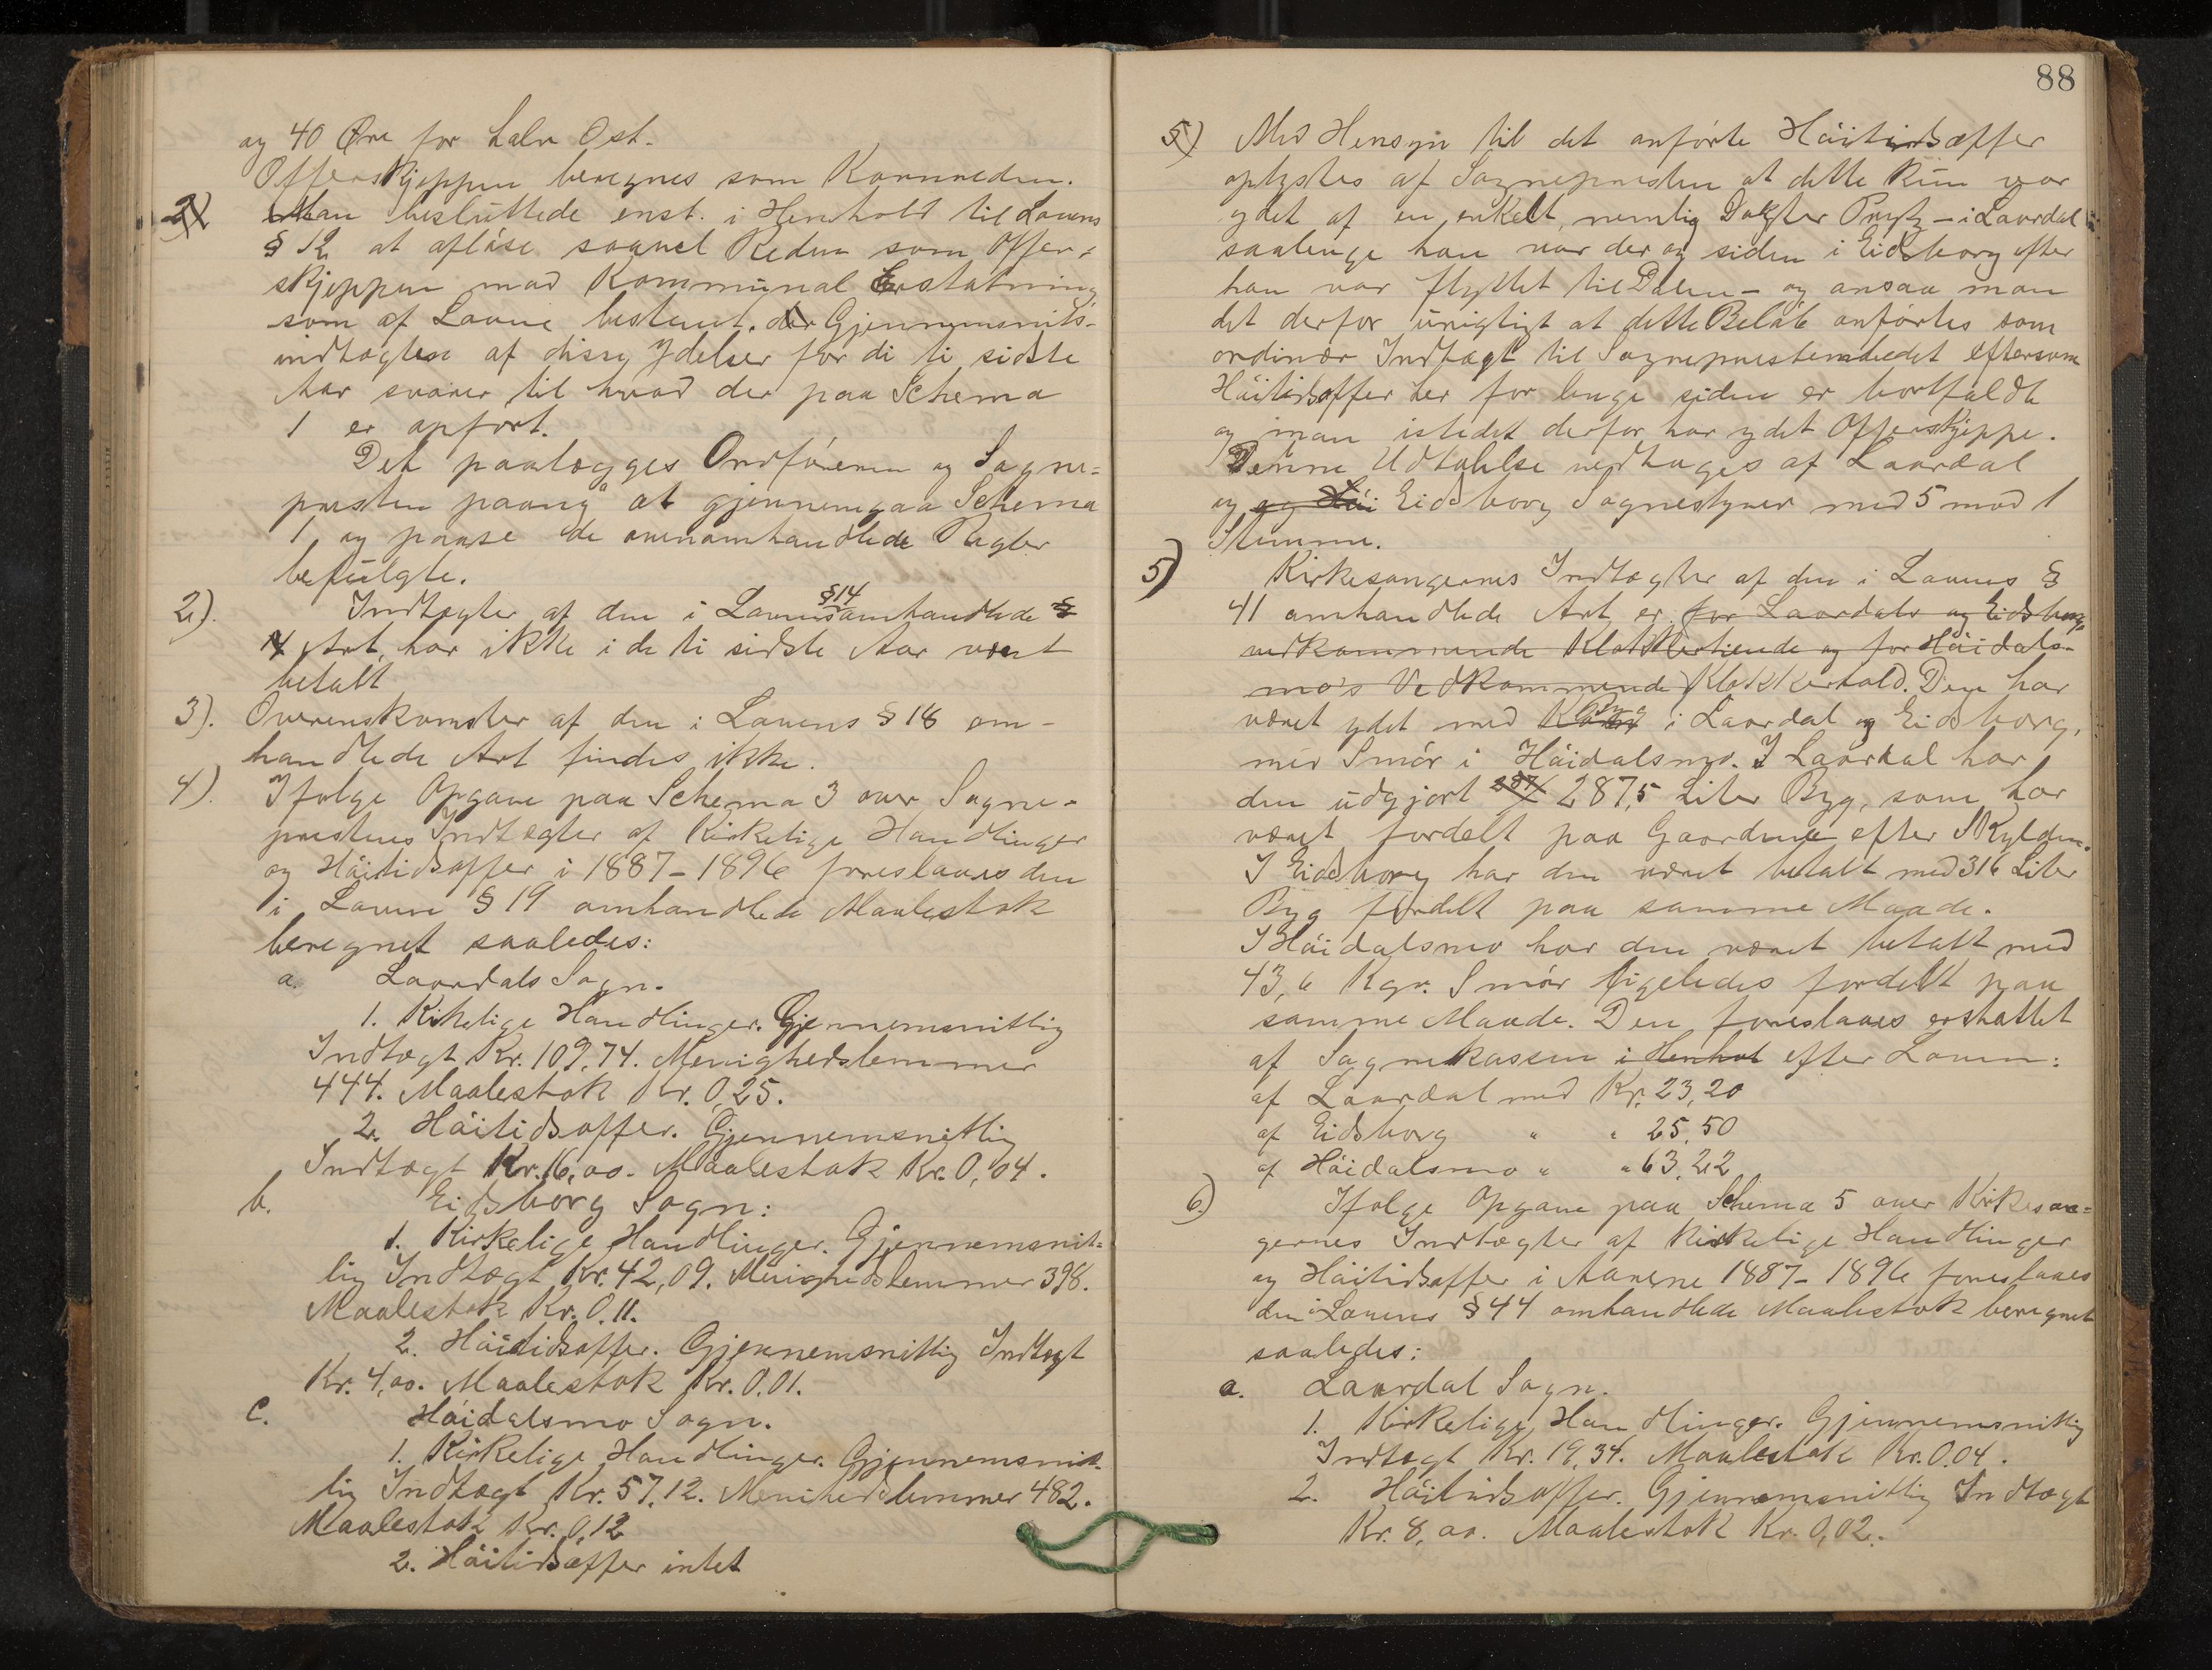 og 40 Øre for halv Ost.
Offerskjeppen beregnes som Kornreden.
2) Man besluttede enst. i Henhold til Lovens
§ 12 at afløse saavel Reden som Offer-
skjeppen mod Kommunal Erstatning
som af Loven bestemt, der Gjennemsnits-
indtægten af disse Ydelser for di ti sidste
Aar svarer til hvad der paa Schema
1 er opført.
Det paalægges Ordføreren og Sogne-
presten paany at gjennemgaa Schema
1 og paase de ovenomhandlede Regler
befulgte.
2). Indtægter af den i Lovens §14 omhandlede §
14 Art, har ikke i de ti sidste Aar været
betalt
3). Overenskomster af den i Lovens § 18 om-
handlede Art findes ikke.
4). Ifølge Opgave paa Schema 3 over Sogne-
prestens Indtægter af Kirkelige Handlinger
og Höitidsoffer i 1887-1896 foreslaaes den
i Loven § 19 omhandlede Maalestok
beregnet saaledes:
a. Laardals Sogn.
1. Kirkelige Handlinger. Gjennemsnitlig
Indtægt Kr. 109,74. Menighedslemmer
444. Maalestok Kr. 0,25.
2. Höitidsoffer. Gjennemsnitlig
Indtægt Kr. 16,00. Maalestok Kr. 0,04.
b. Eidsborg Sogn:
1. Kirkelige Handlinger. Gjennemsnit-
lig Indtægt Kr. 42,09. Menighedslemmer 398.
Maalestok Kr. 0.11.
2. Höitidsoffer. Gjennemsnitlig Indtægt
Kr. 4,00. Maalestok Kr. 0.01.
c. Höidalsmo Sogn.
1. Kirkelige Handlinger. Gjennemsnit-
lig Indtægt Kr. 57.12. Menihedslemmer 482.
Maalestok Kr. 0,12
2. Höitidsoffer intet
88
5) Med Hensyn til det anførte Höitidsoffer
oplystes af Sognepresten at dette kun var
ydet af en enkelt, nemlig Dokter - i Laardal
saalenge han var der og siden i Eidsborg efter
han var flyttet til Dalen - og ansaa man
det derfor urigtigt at dette Beløb anførtes som
ordinær Indtægt til Sogneprestembedet eftersom
Höitidsoffer her for lenge siden er bortfaldt
og man istedet derfor har ydet Offerskjeppe.
Denne Udtalelse vedtages af Laardal
og og Höi Eidsborg Sognestyrer med 5 mod 1
Stemme.
5) Kirkesangernes Indtægter af den i Lovens §
41 omhandlede Art er for Laardals og Eidsborgs
vedkommende Klokkertiende og for Höidals-
mo's Vedkommende Klokkertold. Den har
været ydet med Byg i Laardal og Eidsborg,
med Smör i Höidalsmo. I Laardal har
den udgjort 287 287,5 Liter Byg, som har
været fordelt paa Gaardene efter Skylden.
I Eidsborg har den været betalt med 316 Liter
Byg fordelt paa samme Maade.
I Höidalsmo har den været betalt med
43,6 Kgr. Smör ligeledes fordelt paa
samme Maade. Den foreslaaes erstattet
af Sognekassen i Henhol efter Loven:
af Laardal med Kr. 23,20
af Eidsborg " " 25,50
af Höidalsmo " " 63,22
6) Ifølge Opgave paa Schema 5 over Kirkesan-
gernes Indtægter af kirkelige Handlinger
og Höitidsoffer i Aarene 1887-1896 foreslaaes
den i Lovens § 44 omhandlede Maalestok beregnet
saaledes:
a. Laardal Sogn.
1. Kirkelige Handlinger. Gjennemsnitlig
Indtægt Kr. 19,34. Maalestok Kr. 0.04.
2. Höitidsoffer. Gjennemsnitlig Indtægt
Kr. 8,00. Maalestok Kr. 0,02.